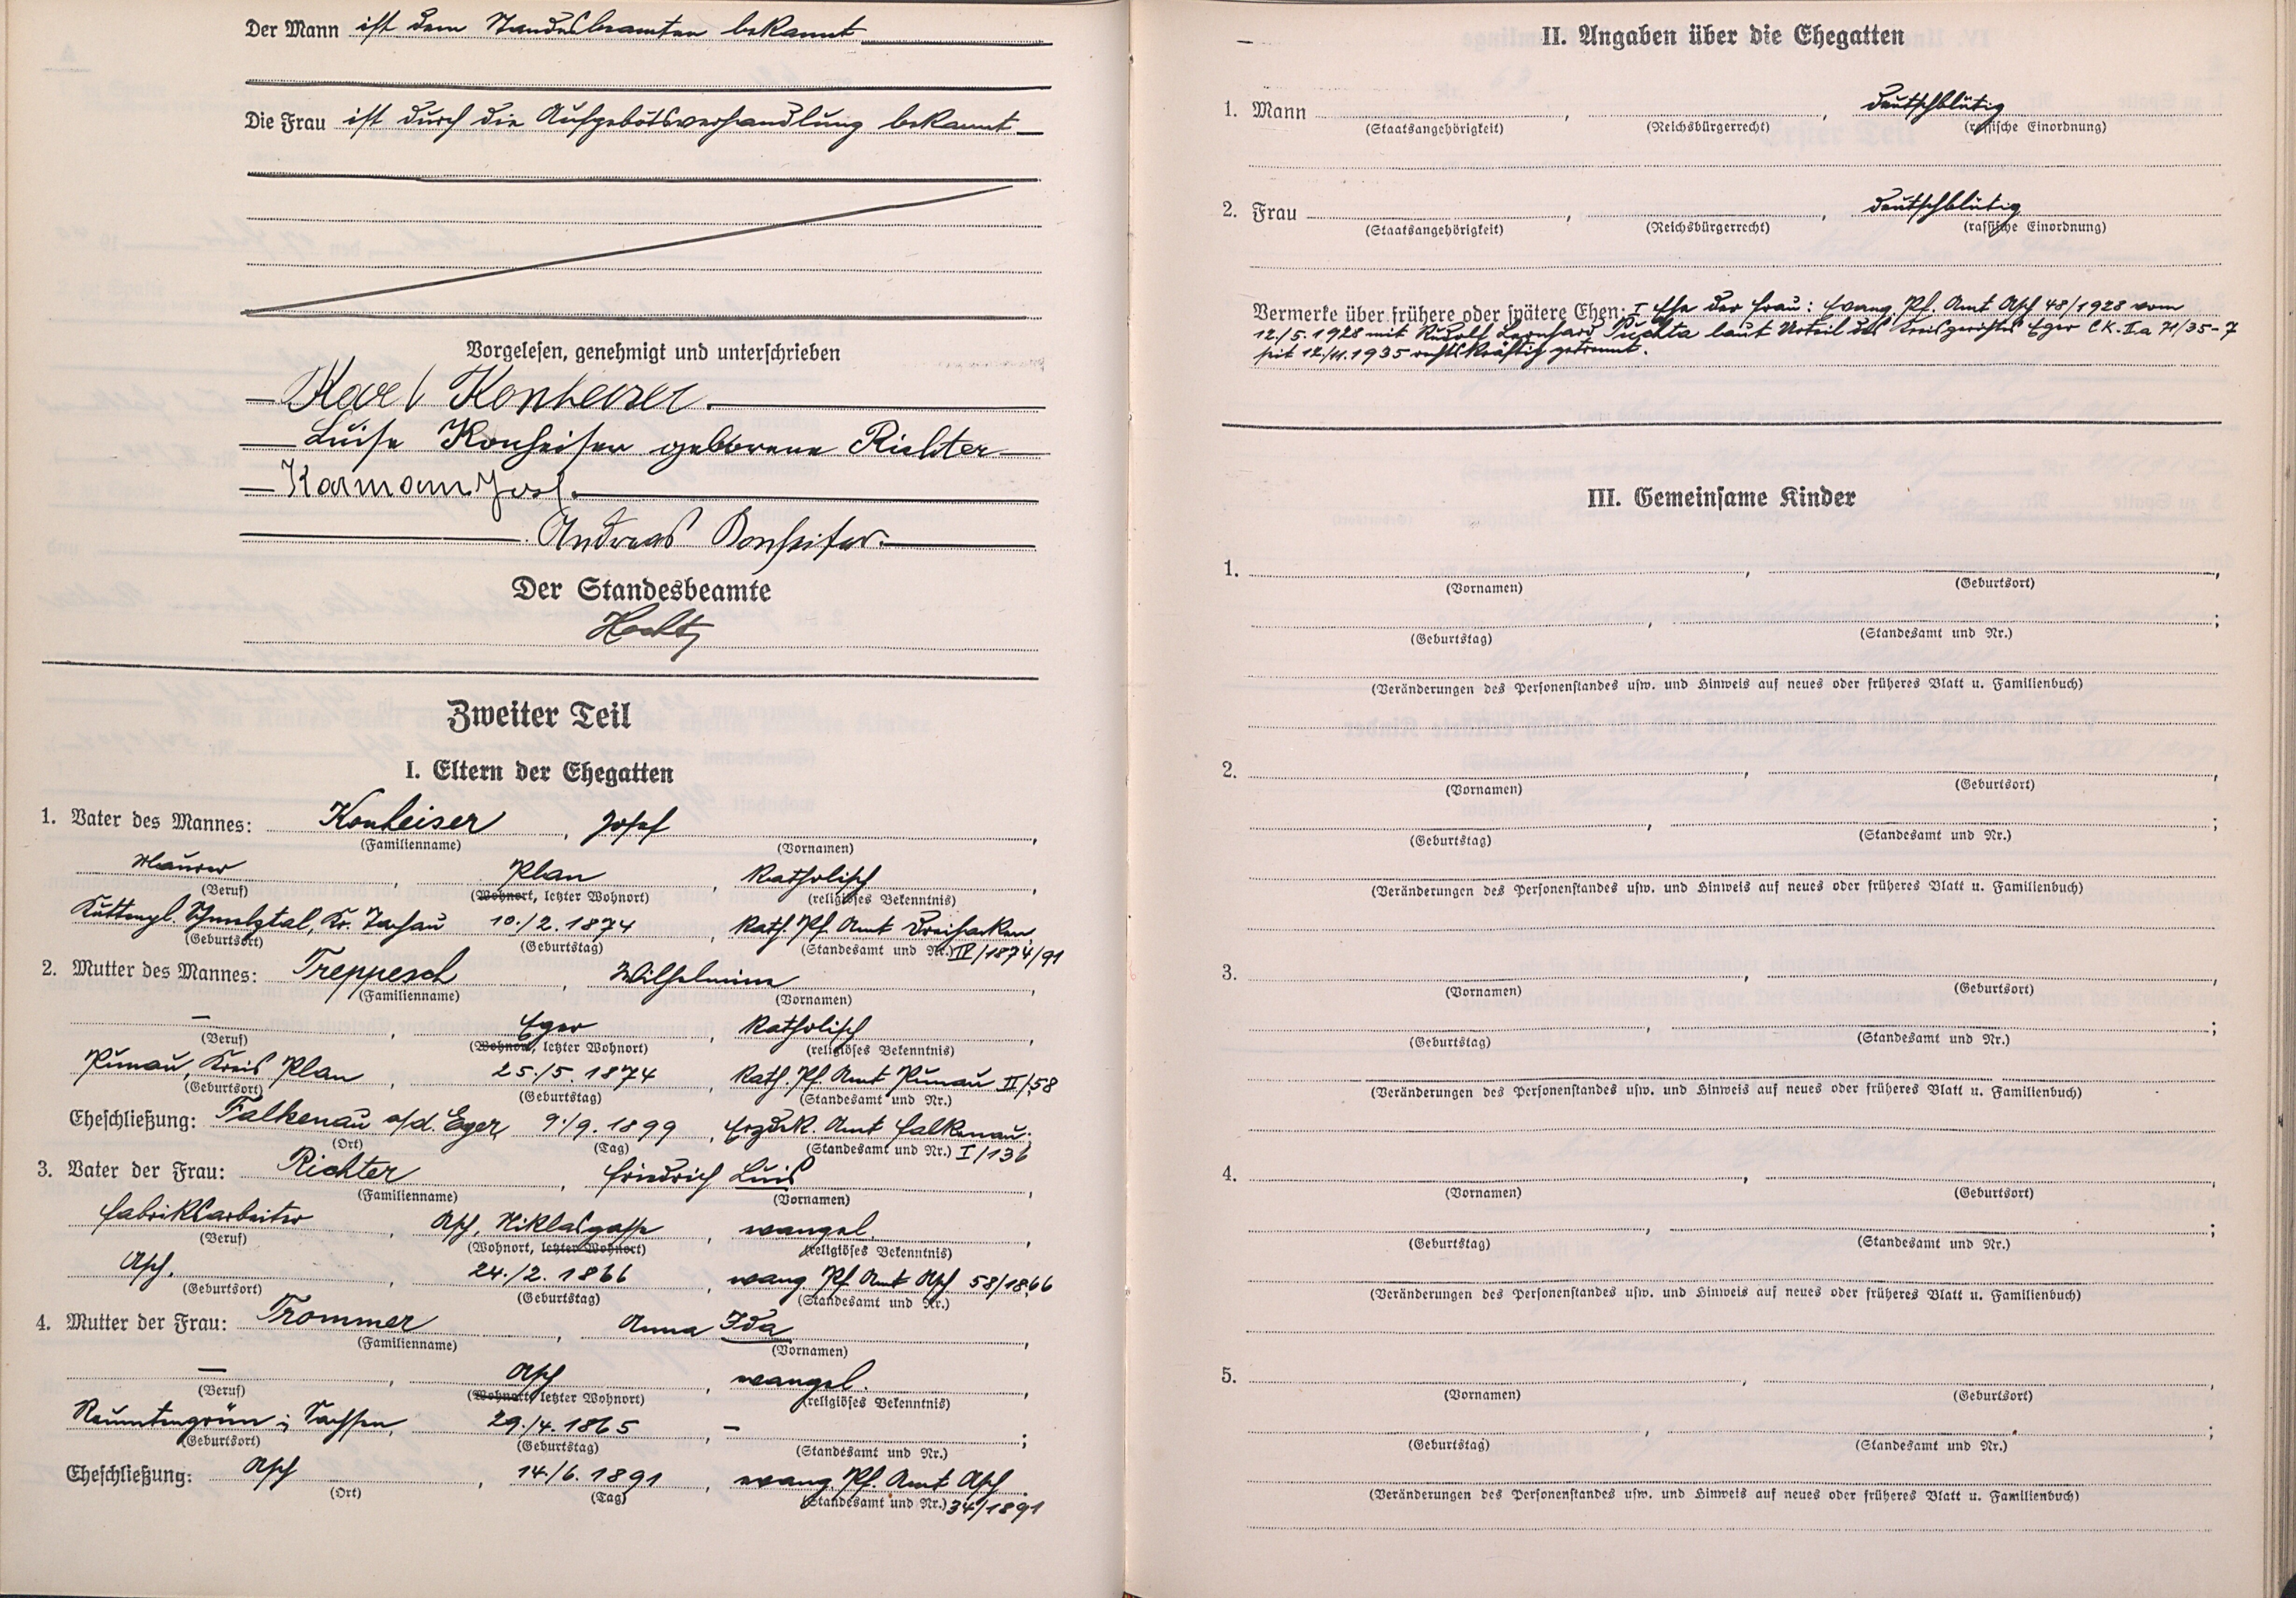 Der Mann ist dem Standesbeamten bekannt
Die Frau ist durch die Aufgebotsverhandlung bekannt
Vorgelesen, genehmigt und unterschrieben
Karl Konheiser.
Luise Konheiser geborene Richter
Karmann Josf.
Andreas Konheiser.
Der Standesbeamte
Zweiter Teil
I. Eltern der Ehegatten
1. Vater des Mannes: Konheiser, Josef,
(Familienname) (Vornamen)
Maurer, Plan, katholisch,
(Beruf) (Wohnort, letzter Wohnort) (religiöses Bekenntnis)
Schmelztal, Kr. Tachau 10./2. 1874, Kath. Pf. Amt Dreihacken,
(Geburtsort) (Geburtstag) (Standesamt und Nr.) IV/1874/91
2. Mutter des Mannes: Treppesch, Wilhelmine,
(Familienname) (Vornamen)
—, Eger, katholisch,
(Beruf) (Wohnort, letzter Wohnort) (religiöses Bekenntnis)
Punau, Kreis Plan, 25./5. 1874, Kath. Pf. Amt Punau II/58
(Geburtsort) (Geburtstag) (Standesamt und Nr.)
Eheschließung: Falkenau a/d. Eger, 9./9. 1899, Erzdek. Amt Falkenau;
(Ort) (Tag) (Standesamt und Nr.) I/136
3. Vater der Frau: Richter, Friedrich Luis,
(Familienname) (Vornamen)
Fabriksarbeiter, Asch, Niklasgasse, evangel.,
(Beruf) (Wohnort, letzter Wohnort) (religiöses Bekenntnis)
Asch., 24./2. 1866, evang. Pf. Amt Asch 58/1866
(Geburtsort) (Geburtstag) (Standesamt und Nr.)
4. Mutter der Frau: Trommer, Anna Ida,
(Familienname) (Vornamen)
—, Asch, evangel.,
(Beruf) (Wohnort, letzter Wohnort) (religiöses Bekenntnis)
Raumtengrün i. Sachsen, 29./4. 1865, –;
(Geburtsort) (Geburtstag) (Standesamt und Nr.)
Eheschließung: Asch, 14./6. 1891, evang. Pf. Amt Asch.
(Ort) (Tag) (Standesamt und Nr.) 34/1891
II. Angaben über die Ehegatten
1. Mann, , deutschblütig
(Staatsangehörigkeit) (Reichsbürgerrecht) (rassische Einordnung)
2. Frau, , deutschblütig
(Staatsangehörigkeit) (Reichsbürgerrecht) (rassische Einordnung)
Vermerke über frühere oder spätere Ehen: I Ehe der Frau: Evang. Pf. Amt Asch 48/1928 vom
12./5. 1928 mit Rudolf Bernhard Puchta laut Urteil des Kreisgerichtes Eger CK. II a 71/35-7
seit 12./11. 1935 rechtskräftig getrennt.
III. Gemeinsame Kinder
1. , ,
(Vornamen) (Geburtsort)
, ;
(Geburtstag) (Standesamt und Nr.)
(Veränderungen des Personenstandes usw. und Hinweis auf neues oder früheres Blatt u. Familienbuch)
2. , ,
(Vornamen) (Geburtsort)
, ;
(Geburtstag) (Standesamt und Nr.)
(Veränderungen des Personenstandes usw. und Hinweis auf neues oder früheres Blatt u. Familienbuch)
3. , ,
(Vornamen) (Geburtsort)
, ;
(Geburtstag) (Standesamt und Nr.)
(Veränderungen des Personenstandes usw. und Hinweis auf neues oder früheres Blatt u. Familienbuch)
4. , ,
(Vornamen) (Geburtsort)
, ;
(Geburtstag) (Standesamt und Nr.)
(Veränderungen des Personenstandes usw. und Hinweis auf neues oder früheres Blatt u. Familienbuch)
5. , ,
(Vornamen) (Geburtsort)
, ;
(Geburtstag) (Standesamt und Nr.)
(Veränderungen des Personenstandes usw. und Hinweis auf neues oder früheres Blatt u. Familienbuch)